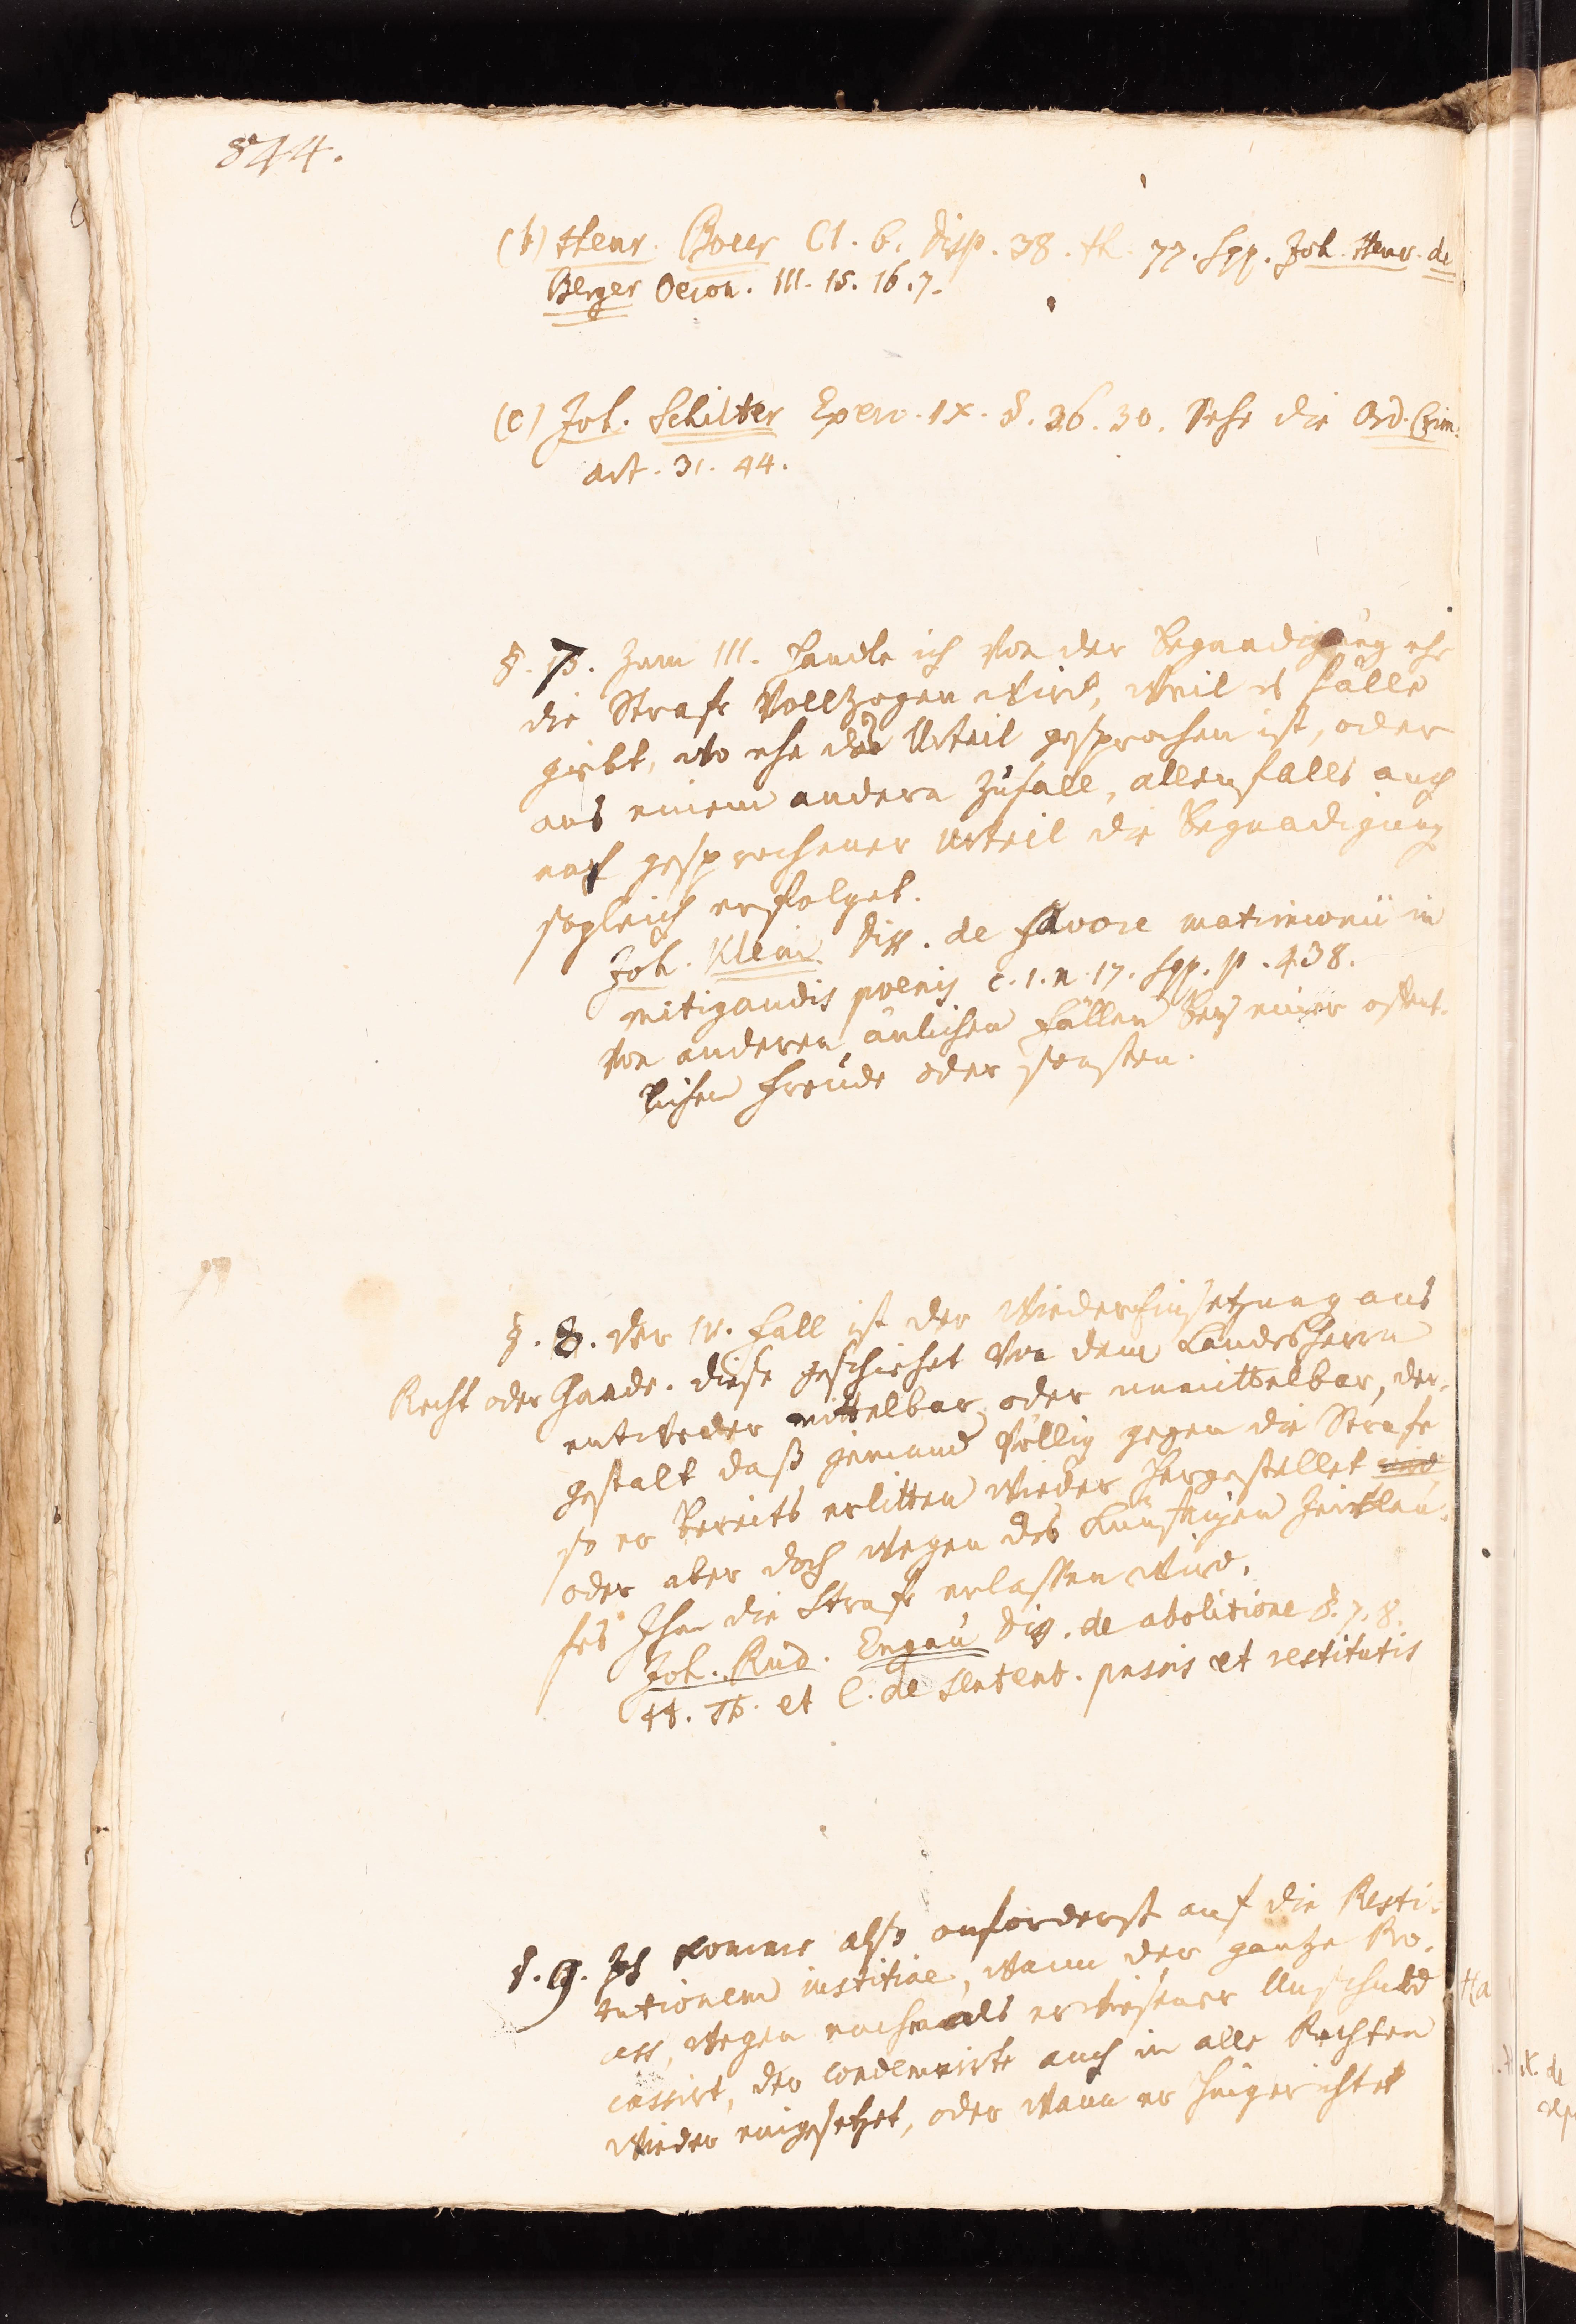 844.
(b) Henr. Bocer Cl. 6. Disp. 38. th. 77. sqq. Joh. Henr. de
Berger Oecon. III. 15. 16. 7.
(c) Joh. Schilter Exerc. IX. §. 26. 30. Sehe die Ord. Crim.
art. 31. 44.
§. 7. Zum III. handle ich von der Begnadigung ehe
die Strafe vollzogen wird, weil es fälle
giebt, wo ehe das Urteil gesprochen ist, oder
aus einem andern Zufall, allenfalls auch
nach gesprochener Urteil die Begnadigung
sogleich erfolget.
Joh. Klein Diss. de favore matrimonii in
mitigandis poenis c. 1. n. 17. sqq. p. 438.
von anderen änlichen fällen bey einer offent-
lichen Freude oder sonsten.
§. 8. Der IV. Fall ist der Wiedereinsetzung aus
Recht oder Gnade. diese geschiehet von dem Landsherrn
entweder mittelbar oder unmittelbar, der-
gestalt daß jemand völlig gegen die Strafe
so er bereits erlitten wieder hergestellet wird
oder aber doch wegen des künftigen
Ihm die Strafe erlassen wird.
Joh. Rud. Engau Diss. de abolitione §. 7. 8.
tt. ff. et C. de sentent. passis et restitutis
§. 9. Ich komme also vorderst auf die Resti-
tutionem iustitiae, wann der gantze Pro-
cess, wegen nachmals erwiesener Unschuld
cassirt, der condemnirte auch in alle Rechten
wieder eingesetzet, oder wann er hingerichtet